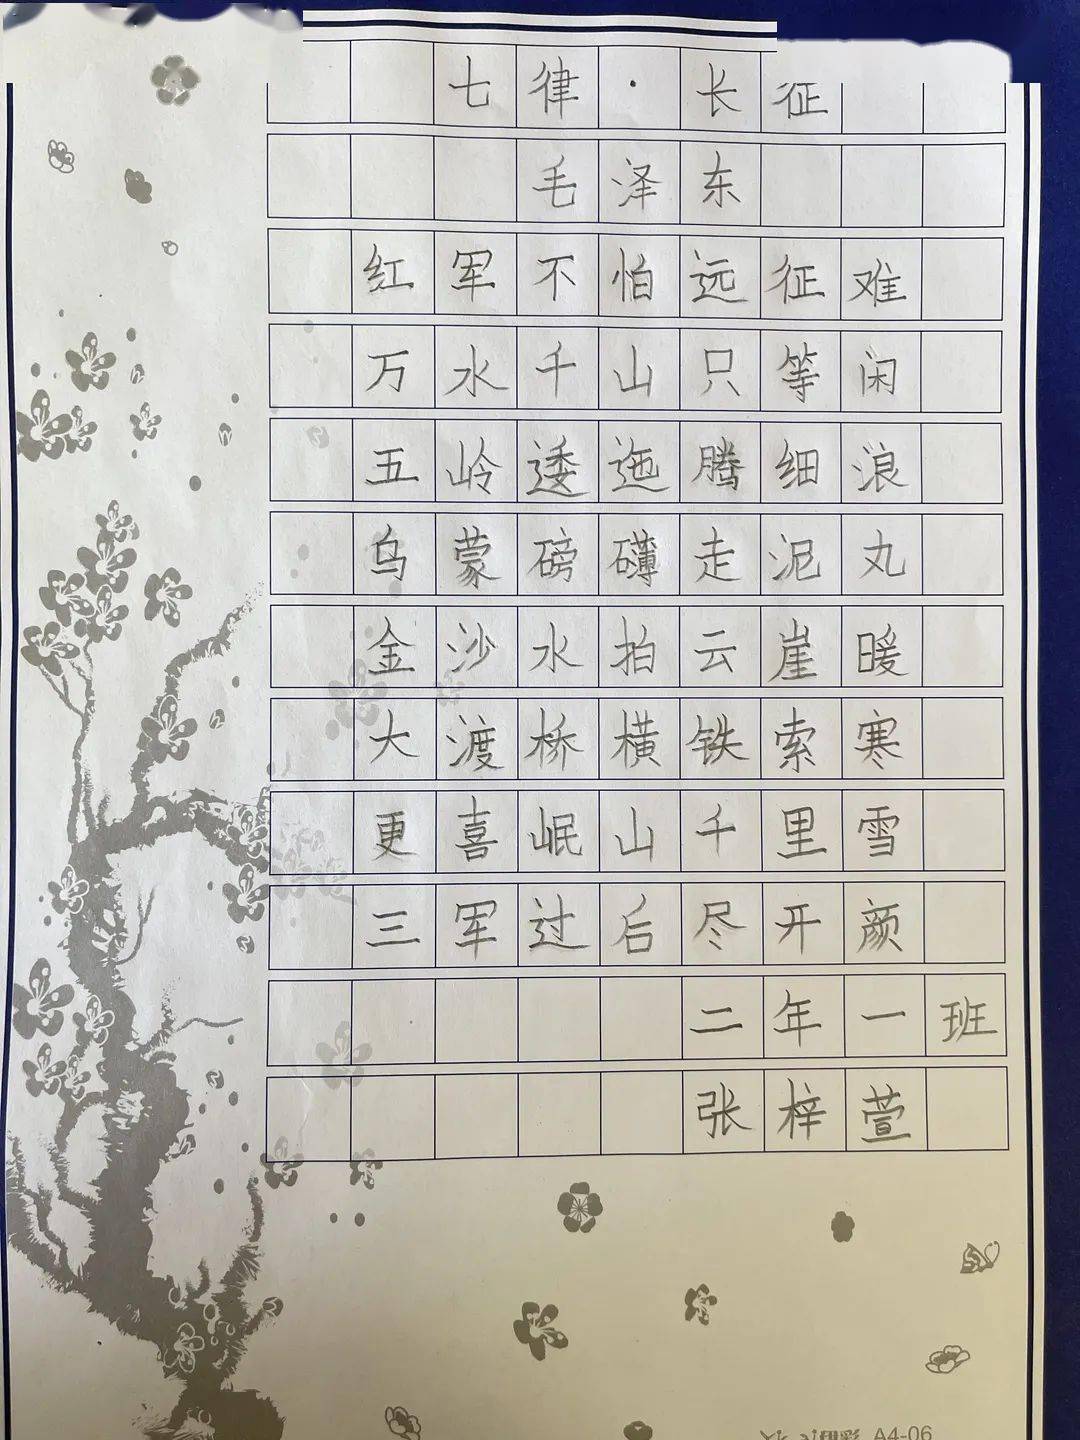 七律·长征
毛泽东
红军不怕远征难
万水千山只等闲
五岭逶迤腾细浪
乌蒙磅礴走泥丸
金沙水拍云崖暖
大渡桥横铁索寒
更喜岷山千里雪
三军过后尽开颜
二年一班
张梓萱
A4-06